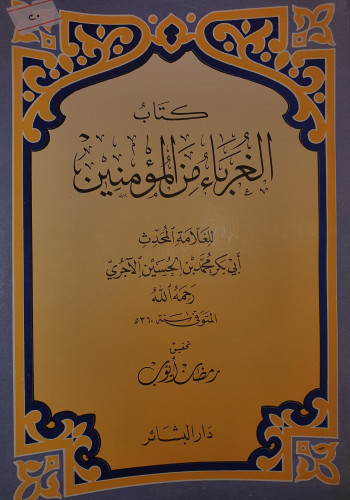 ٢٠
كتاب
الغُرَبَاءُ مِنَ المُؤْمِنِينَ
للعَلّامَةِ المُحَدِّثِ
أَبي بَكْرٍ مُحَمَّدِ بْنِ الحُسَيْنِ الآجُرِّي
رَحِمَهُ اللهُ
المتوفى سنة ٣٦٠ هـ
تحقيق
رمضان أيوب
دار البشائر